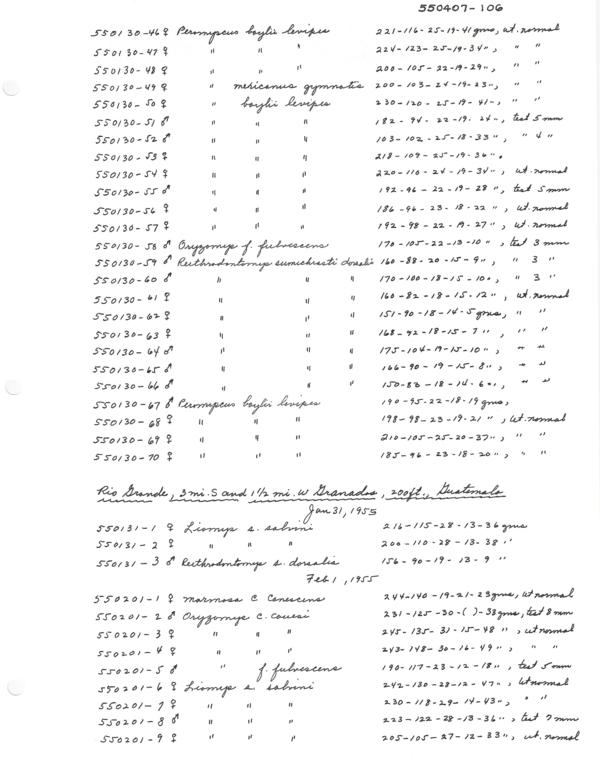 550407-106
550130-46♀ Peromyscus boylii levipes 221-116-25-19-41 gms, ut. normal
550130-47♀ " " " 224-123-25-19-34 ", " "
550130-48♀ " " " 200-105-22-19-29 ", " "
550130-49♀ " mexicanus gymnotis 200-103-24-19-23 ", " "
550130-50♀ " boylii levipes 230-120-25-19-41 ", " "
550130-51♂ " " " 182-94-22-19-24 ", test 5 mm
550130-52♂ " " " 103-102-25-18-33 ", " 4 "
550130-53♀ " " " 218-109-25-19-36 ".
550130-54♀ " " " 220-110-24-19-34 ", ut. normal
550130-55♂ " " " 192-96-22-19-28 ", test 5 mm
550130-56♀ " " " 186-96-23-18-22 ", ut. normal
550130-57♀ " " " 192-98-22-19-27 ", ut. normal
550130-58♂ Oryzomys f. fulvescens 170-105-22-13-10 ", test 3 mm
550130-59♂ Reithrodontomys sumichrasti dorsalis 160-88-20-15-9 ", " 3 "
550130-60♂ " " " 170-100-18-15-10 ", " 3 "
550130-61♀ " " " 160-82-18-15-12 ", ut. normal
550130-62♀ " " " 151-90-18-14-5 gms, " "
550130-63♀ " " " 168-92-18-15-7 ", " "
550130-64♂ " " " 175-104-19-15-10 ", " "
550130-65♂ " " " 166-90-19-15-8 ", " "
550130-66♂ " " " 150-83-18-14-6 ", " "
550130-67♂ Peromyscus boylii levipes 190-95-22-18-19 gms,
550130-68♀ " " " 198-98-23-19-21 ", ut. normal
550130-69♀ " " " 210-105-25-20-37 ", " "
550130-70♀ " " " 185-96-23-18-20 ", " "
Rio Grande, 3 mi. S and 1 1/2 mi. W Granados, 200 ft., Guatemala
Jan 31, 1955
550131-1♀ Liomys s. salvini 216-115-28-13-36 gms
550131-2♀ " " " 200-110-28-13-38 "
550131-3♂ Reithrodontomys s. dorsalis 156-90-19-13-9 "
Feb 1, 1955
550201-1♀ Marmosa c. canescens 244-140-19-21-23 gms, ut normal
550201-2♂ Oryzomys c. couesi 231-125-30-( )-38 gms, test 8 mm
550201-3♀ " " " 245-135-31-15-48 ", ut normal
550201-4♀ " " " 243-148-30-16-49 ", "
550201-5♂ " f. fulvescens 190-117-23-12-18 ", test 5 mm
550201-6♀ Liomys s. salvini 242-130-28-12-47 ", ut normal
550201-7♀ " " " 230-118-29-14-43 ", " "
550201-8♂ " " " 223-122-28-13-36 ", test 7 mm
550201-9♀ " " " 205-105-27-12-33 ", ut. normal